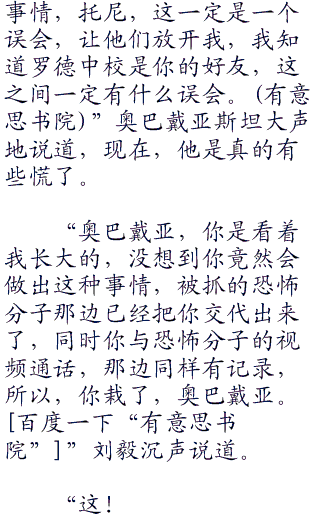 事情，托尼，这一定是一个
误会，让他们放开我，我知
道罗德中校是你的好友，这
之间一定有什么误会。(有意
思书院)”奥巴戴亚斯坦大声
地说道，现在，他是真的有
些慌了。
“奥巴戴亚，你是看着
我长大的，没想到你竟然会
做出这种事情，被抓的恐怖
分子那边已经把你交代出来
了，同时你与恐怖分子的视
频通话，那边同样有记录，
所以，你栽了，奥巴戴亚。
[百度一下“有意思书
院”]”刘毅沉声说道。
“这！